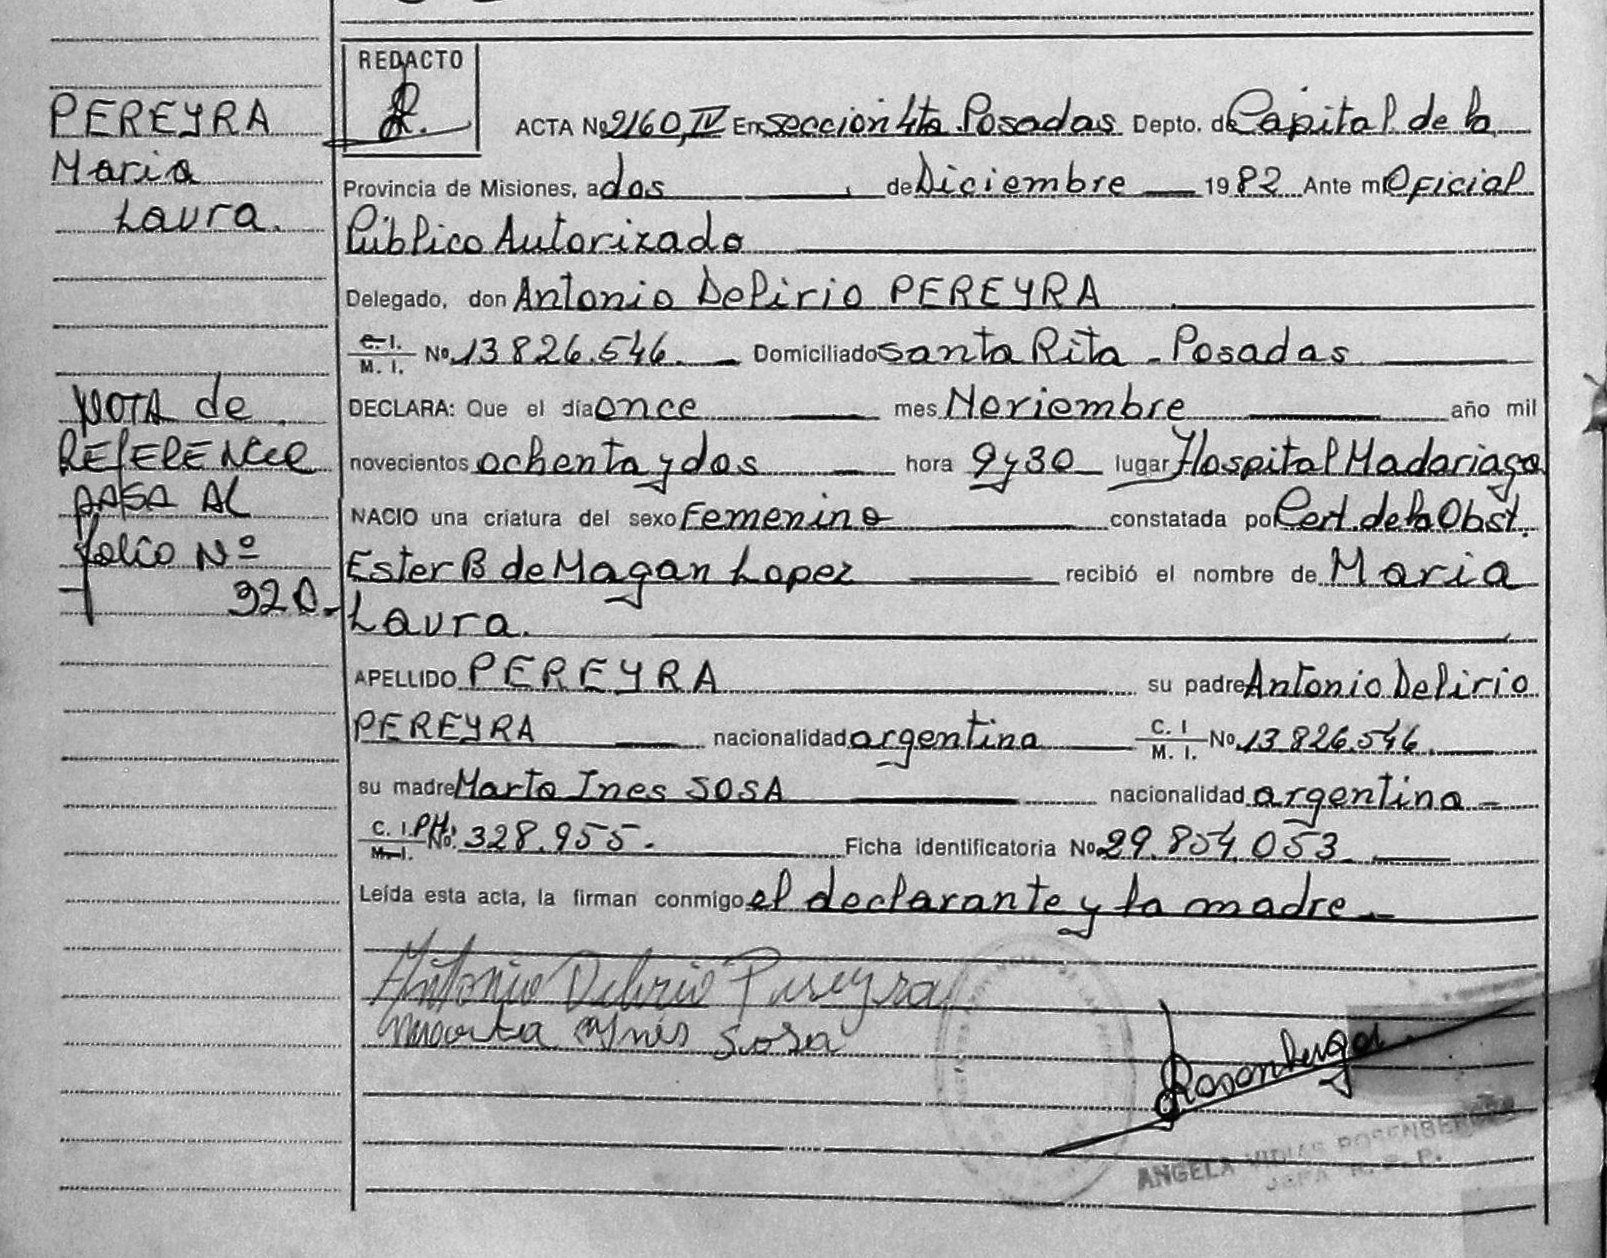 REDACTO
PEREYRA
Maria
Laura.
ACTA No 2160, IV En seccion 4ta Posadas Depto. de Capital de la
Provincia de Misiones, a dos de Diciembre 1982 Ante mi Oficial
Público Autorizado
Delegado, don Antonio Delirio PEREYRA
C. I.
M. I. No. 13 826.546. Domiciliado santa Rita - Posadas
DECLARA: Que el día once mes Noviembre año mil
novecientos ochenta y dos hora 9 y 30 lugar Hospital Madariaga
NACIO una criatura del sexo Femenino constatada por Cert. de la Obst.
Ester B de Magan Lopez recibió el nombre de Maria
Laura.
APELLIDO PEREYRA su padre Antonio Delirio
PEREYRA nacionalidad argentina C. I M. I. No. 13 826.546.
su madre Marta Ines SOSA nacionalidad argentina -
C. I. M. I. No. 328.955. Ficha identificatoria No 29.854.053
Leída esta acta, la firman conmigo el declarante y la madre -
NOTA de
REFERENCIA
PASA AL
folio Nº
320.-
Antonio Delirio Pereyra
Marta Ynés Sosa
Rosemberger
ANGELA